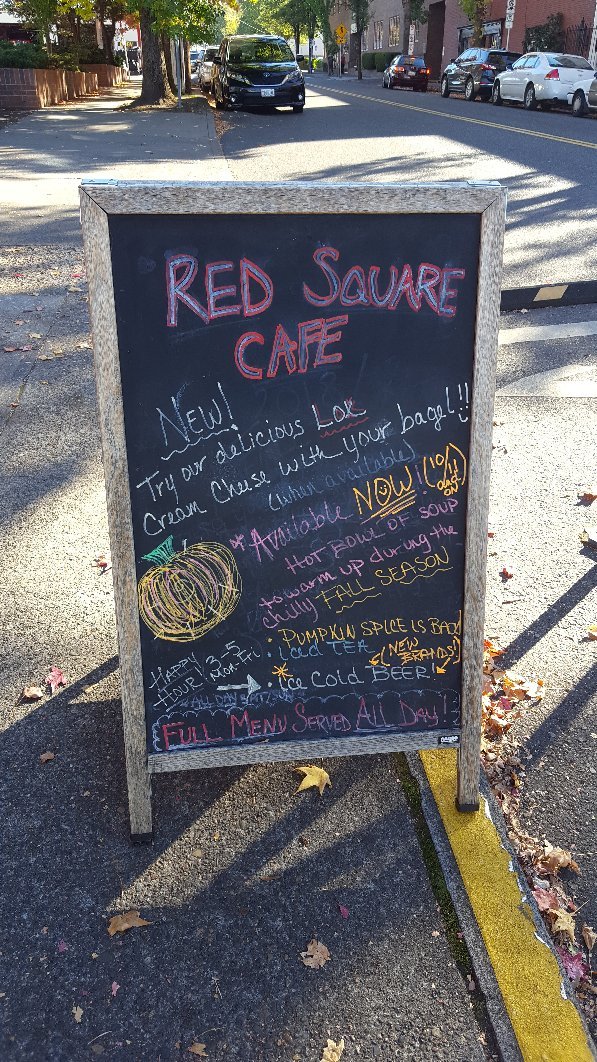 RED SQUARE
CAFE
New!
Try our delicious Lox
Cream Cheese with your bagel!!
(when available)
*Available NOW! (10/11
ON
HOT BOWL OF SOUP
to warm up during the
chilly FALL SEASON
: PUMPKIN SPICE IS BACK!
: iced TEA
HAPPY HOUR! 3-5 MON-FRI
(NEW BRANDS!)
ice Cold BEER!
FULL MENU SERVED ALL DAY!